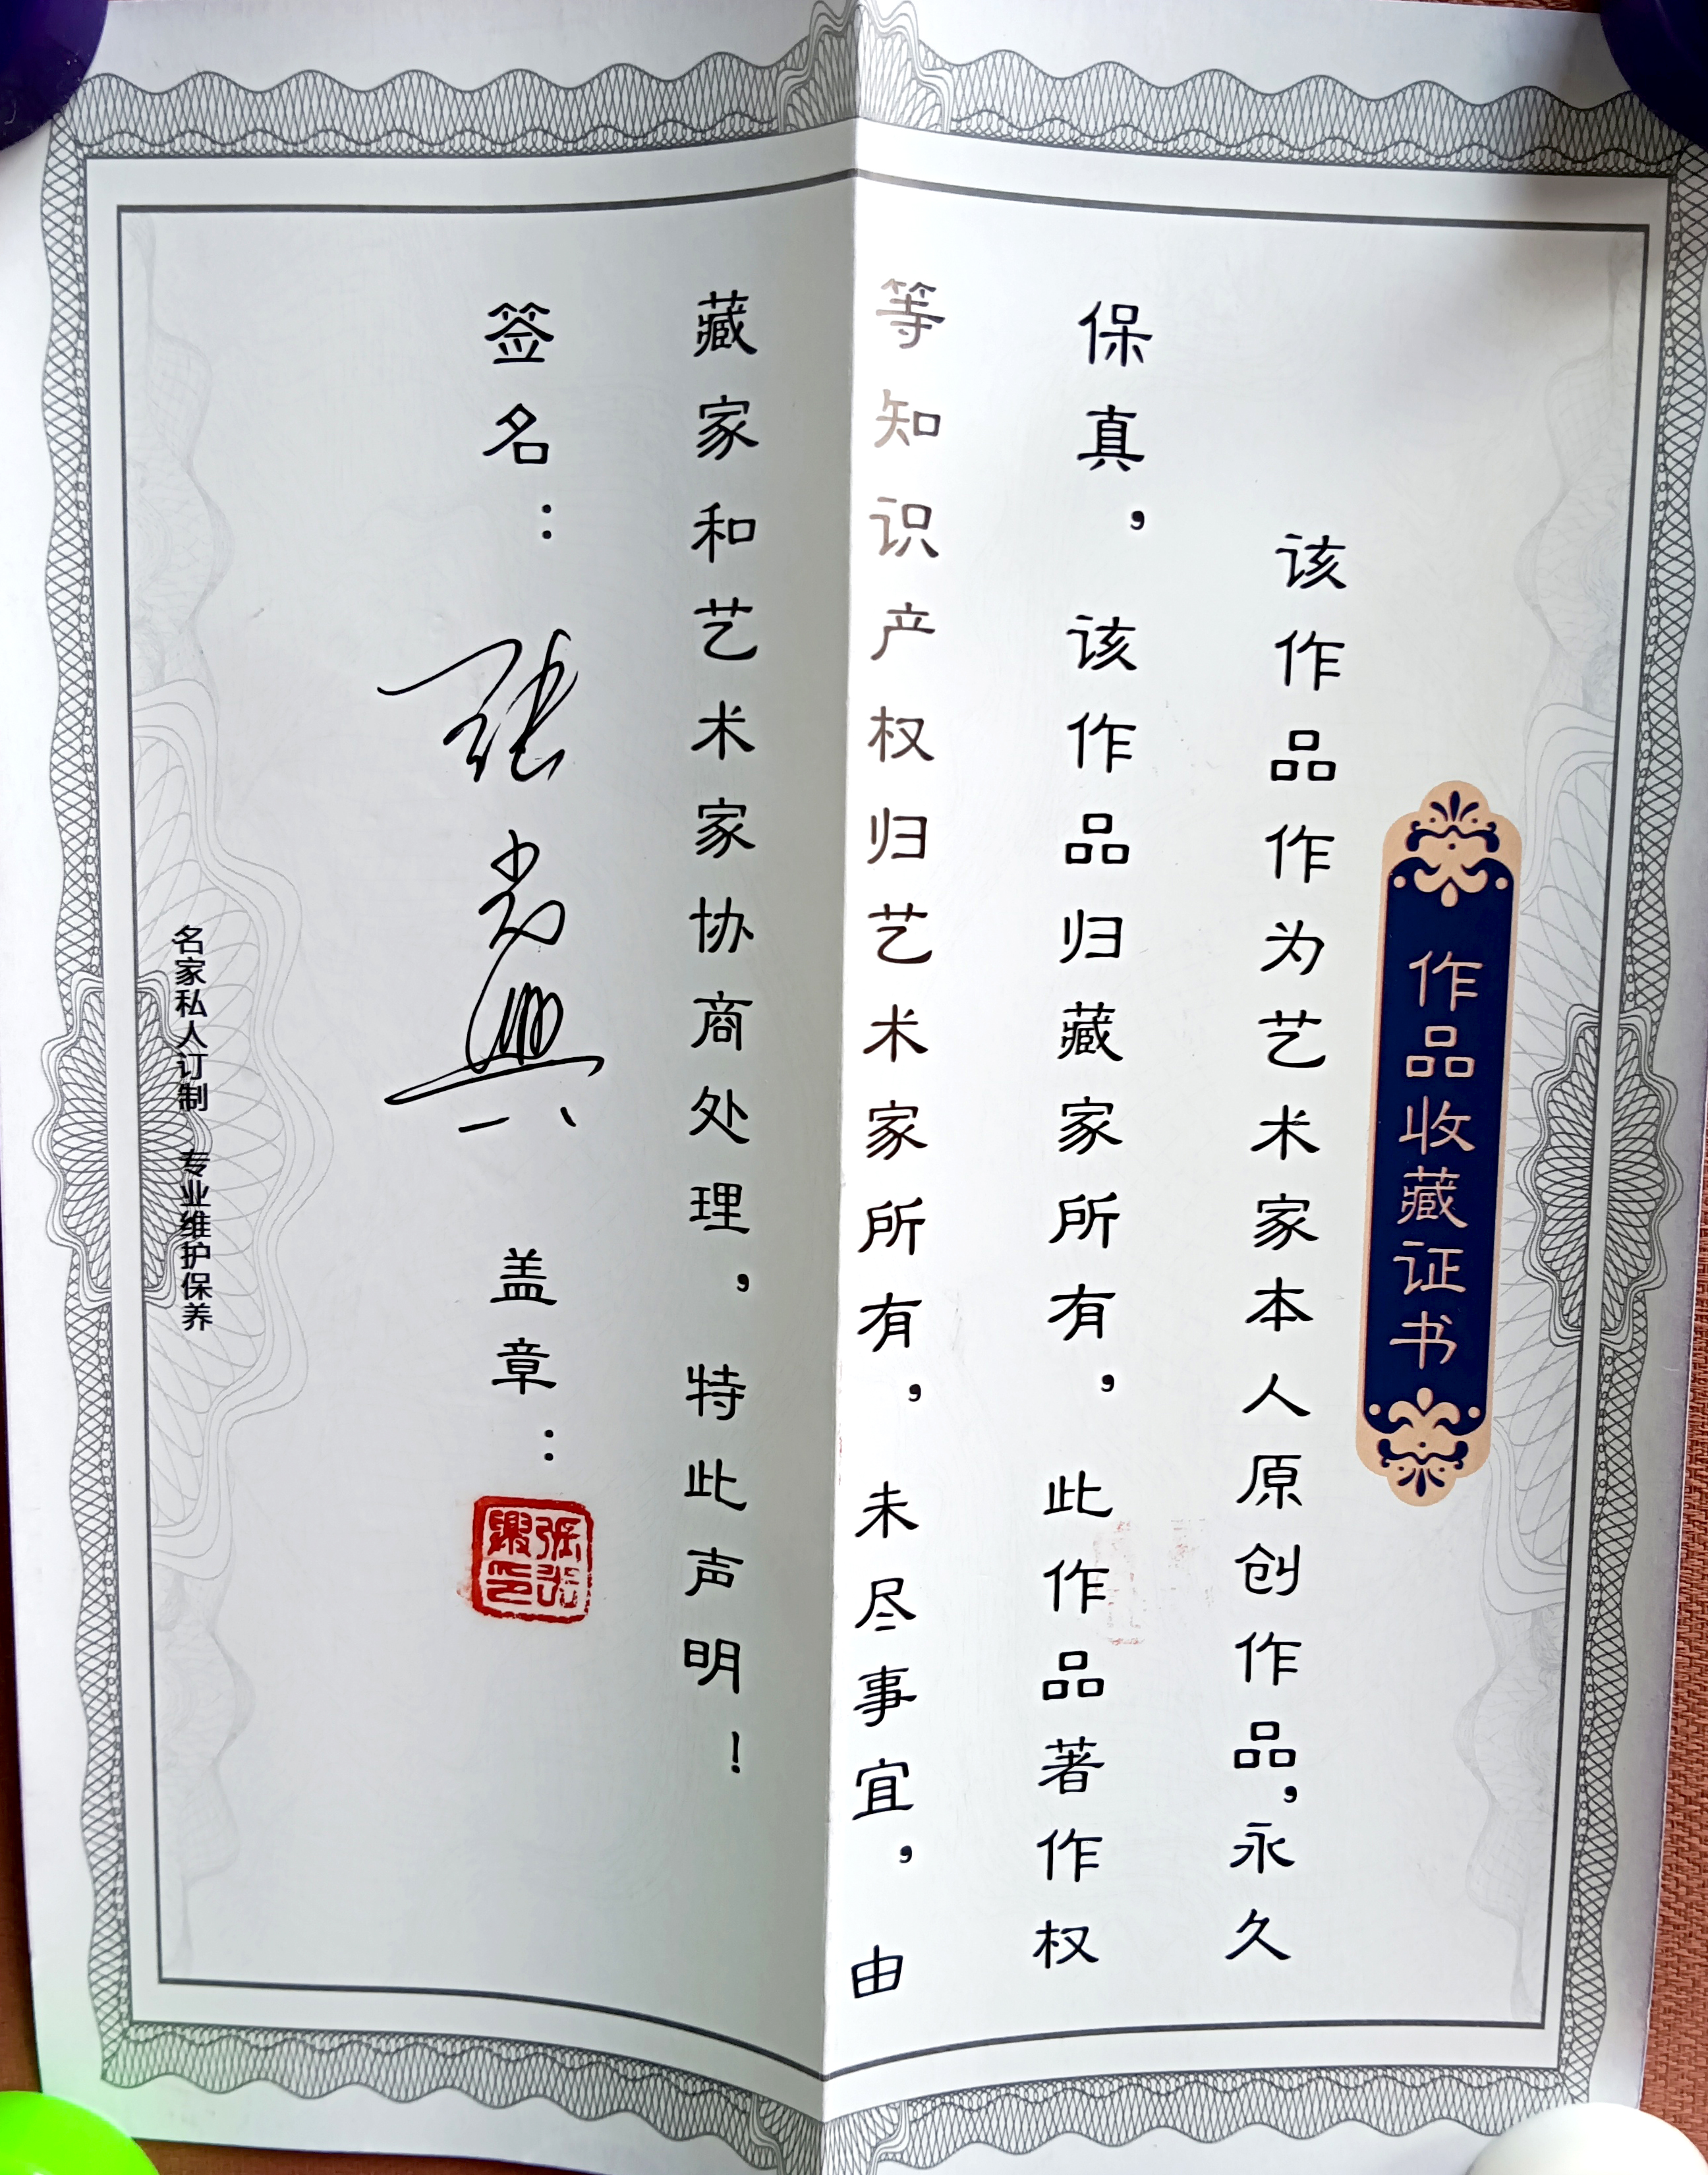 作品收藏证书
该作品作为艺术家本人原创作品，永久
保真，该作品归藏家所有，此作品著作权
等知识产权归艺术家所有，未尽事宜，由
藏家和艺术家协商处理，特此声明！
签名：张 盖章：
名家私人订制 专业维护保养